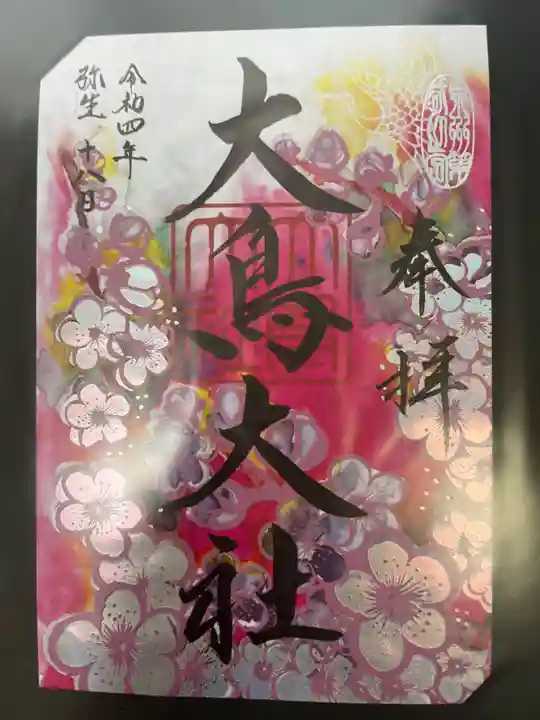 奉拝
大鳥大社
令和四年
弥生十八日